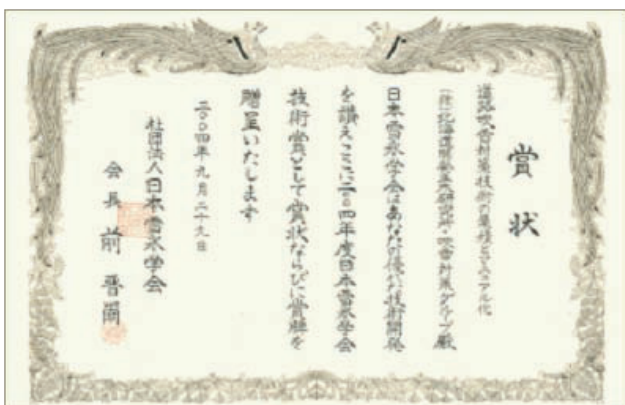 賞状
道路吹雪対策技術の蓄積とマニュアル化
(独)北海道開発土木研究所・吹雪対策グループ殿
日本雪氷学会はあなたの優れた技術開発
を讃えここに二〇〇四年度日本雪氷学会
技術賞として賞状ならびに賞牌を
贈呈いたします
二〇〇四年九月二十九日
社団法人日本雪氷学会
会長 前晋爾